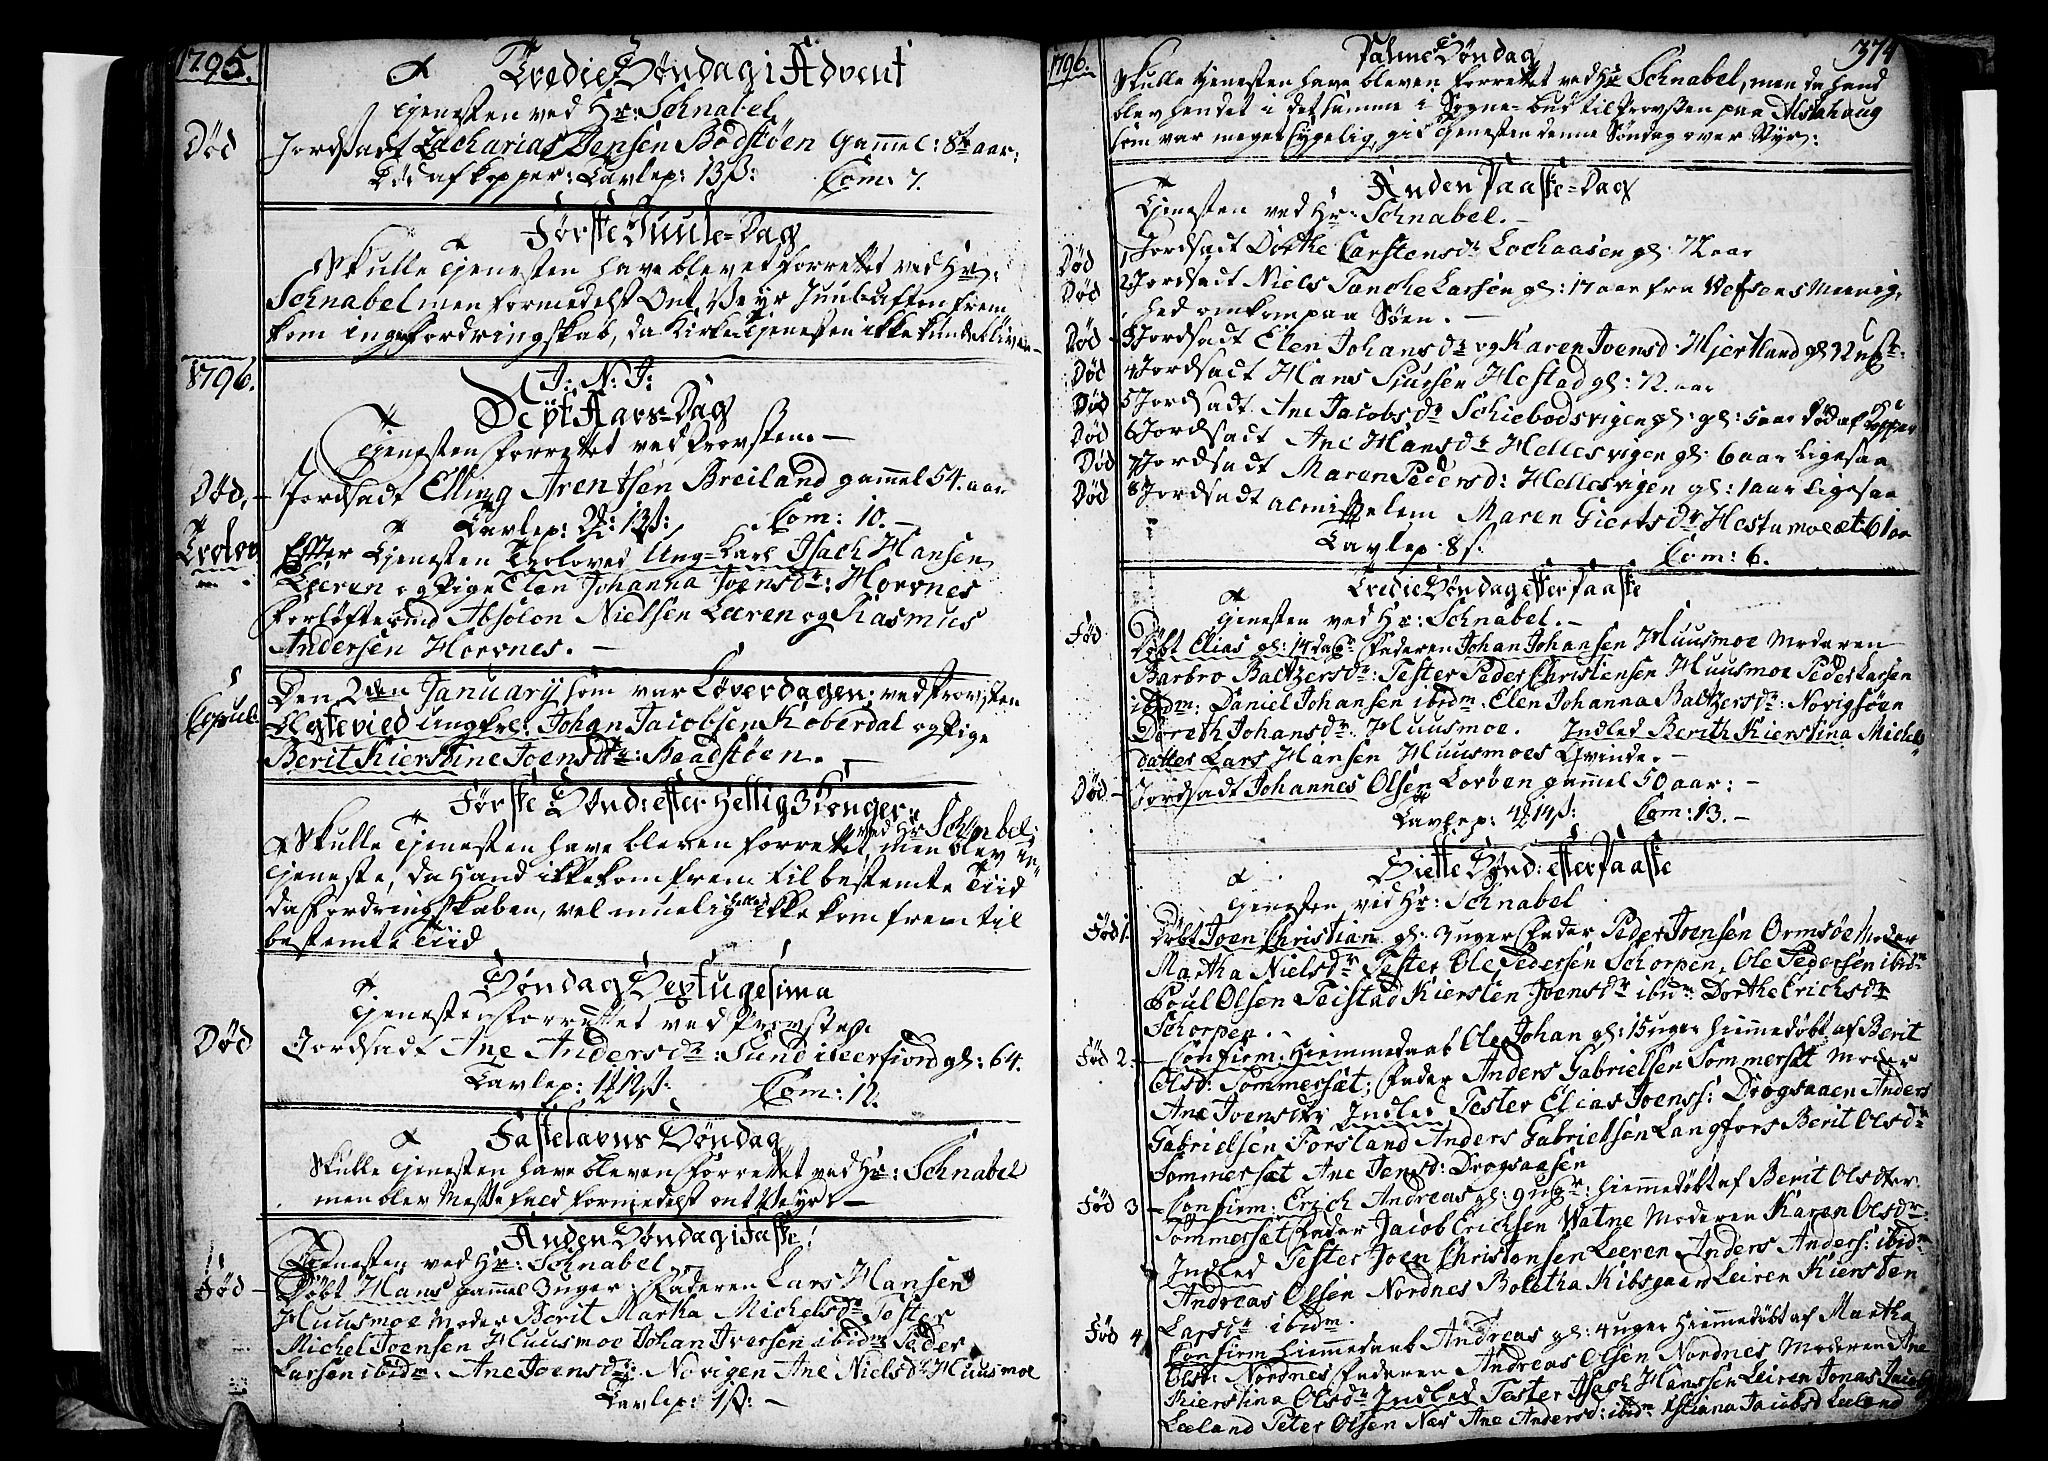 1795.
Tredie Søndag i Advent
Tjenesten ved Hr: Schnabel
Død
Jordsadt Zacharias Jensen Bodstøen gammel: 8te aar:
Død af kopper: Tavlep: 13 s: Com: 7.
Første Juule-Dag
Skulle Tjenesten have blevet forrettet ved Hr:
Schnabel men formedelst Ont Veyr Juul-aften frem
kom ingen fordringskab, da Kirke Tjenesten ikke kunde bliven
1796.
J: N: J:
Nyt Aars-Dag
Tjenesten forrettet ved Provsten.
Død,
Jordsadt Elling Arentsen Breiland gammel 54. aar
Tavlep: 13 s: Com: 10.
Trolov
Efter Tjenesten Troloved Ung-Karl Isach Hansen
Leeren og Pige Elen Johanna Joensdr: Horvnes
Forløfterend Absolon Nielsen Leeren og Rasmus
Andersen Horvnes.
Den 2den January som var Løverdagen: ved Provsten
Copul:
Egtevied ungkrl: Johan Jacobsen Koberdal og Pige
Berit Kierstine Joensdr: Baadstøen.
Første Sønd: efter Hellig 3 Konger
Skulle Tjenesten have bleven forrettet ved Hr Schnabel:
men blev in-
Tjeneste, da Hand ikke kom frem til bestemte Tiid
da fordringskaben, vel muelig heller ikke kom frem til
bestemte Tiid
Søndag Septugesima
Tjenesten forrettet ved Provsten
Død
Jordsadt Ane Andersdr: Sund i Leerfiord gl: 64.
Tavlep: 12 s: Com: 12.
Fastelavns Søndag
Skulle Tjenesten have bleven forrettet ved Hr: Schnabel
men blev Messefald formedelst ont Veyr
Anden Søndag i Faste
Tjenesten ved Hr: Schnabel
Fød
Døbt Hans gammel 3 uger: Faderen Lars Hansen
Huusmoe Moder Berit Martha Michelsdr Tester
Michel Joensen Huusmoe Johan Iversen ibidm Peder
Larsen ibidm: Ane Joensdr: Novigen Ane Nielsdr Huusmoe
Tavlep: 1 s:
1796.
374
Palme Søndag
Skulle Tjenesten have bleven forrettet ved Hr Schnabel, men da hand
blev hendet i det samme i Sogne-bud til Provsten paa Alstahaug
som var meget sygelig, gik Tjenesten denne Søndag over Styr:
Anden Paaske-Dag
Tjenesten ved Hr: Schnabel.
Død 1 Jordsadt Dorthe Carstensdr Lochaasen gl: 72 aar
Død 2 Jordsadt Niels Tanche Larsen gl: 17 aar fra Vefsens Menig-
hed omkom paa Søen.
Død 3 Jordsadt Elen Johansdr og Karen Joensd: Hjertland gl 32
Død 4 Jordsadt Hans Sjursen Hestad gl: 72. aar
Død 5 Jordsadt Ane Jacobsdr Schiebodsvigen gl: 5 aar Død af Kopper
Død 6 Jordsadt Ane Hansdr Hellesvigen gl: 6 aar ligesaa
Død 7 Jordsadt Maren Pedersd: Hellesvigen gl: 1 aar ligesaa
Død 8 Jordsadt almisselem Maren Giertsdr Hestnmoe æt 61 aa
Tavlep: 8 s. Com: 6.
Tredie Søndag efter Paaske
Tjenesten ved Hr: Schnabel.
Fød
Døbt Elias gl: 14 dage Faderen Johan Johansen Huusmoe Moderen
Barbro Baltzersdr: Tester Peder Christensen Huusmoe Peder Larsen
ibidm: Daniel Johansen ibidm: Elen Johanna Baltzersdr: Novigsøen
Doreth Johansdr: Huusmoe. Indled Berith Kierstina Michels
datter Lars Hansen Huusmoes Qvinde.
Død
Jordsadt Johannes Olsen Lorben gammel 50 aar:
Tavlep: 14 s: Com: 13.
Siette Sønd: efter Paaske
Tjenesten ved Hr: Schnabel
Fød 1.
Døbt Joen Christian gl: 3 uger Fader Peder Joensen Ormsøe Moder
Martha Nielsdr Tester Ole Pedersen Schorpen, Ole Pedersen ibidm
Poul Olsen Teistad Kiersten Joensdr ibidm: Dorthe Erichsdr
Schorpen.
Fød 2.
Confirm: Hiemmedaab Ole Johan gl: 15 uger hiemmedøbt af Berit
Olsd: Sommersæt; Fader Anders Gabrielsen Sommersæt Moder
Ane Joensdtr Indled Tester Elias Joenss: Drogsaaen Anders
Gabrielsen Forsland Anders Gabrielsen Langfors Berit Olsdr
Sommersæt Ane Jensd: Drogsaasen
Fød 3
Confirm: Erich Andreas gl: 9 uger: hiemmedøbt af Berit Olsdter
Sommersæt Fader Jacob Erichsen Watne Moderen Karen Olsdr:
Indled Tester Joen Christensen Leeren Anders Anders: ibidm
Andreas Olsen Nordnes Boletha Kibsgaar Leiren Kiersten
Larsdr ibidm.
Fød 4
Confirm Hiemmedaab Andreas gl: 4 uger hiemmedøbt af Martha
Olsd: Nordnes Faderen Andreas Olsen Nordnes Moderen Ane
Kierstina Olsdr Indled Tester Isach Hanssen Leiren Jonas Jacob
Leeland Peter Olsen Næs Ane Andersd: ibidm Jacobsd Leeland